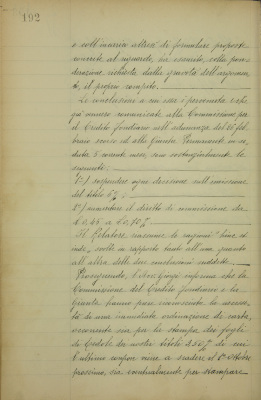 192
e coll'incarico altresì di formulare proposte
concrete al riguardo, ha esaurito, colla pon-
derazione richiesta dalla gravità dell'argomen-
to, il proprio compito.
Le conclusioni a cui essa è pervenuta e che
già vennero comunicate alla Commissione pel
Credito fondiario nell'adunanza del 26 feb-
braio scorso ed alla Giunta Permanente in se-
duta 5 corrente mese, sono sostanzialmente le
seguenti:
1°) sospendere ogni decisione sull'emissione
del titolo 5%;
2°) aumentare il diritto di commissione da
£0,45 a £0,90%.
Il Relatore riassume le ragioni che si
svolte in rapporto tanto all'una quanto
all'altra delle due conclusioni suddette.
Proseguendo, l'Ing. informa che la
Commissione del Credito fondiario e la
Giunta hanno pure riconosciuta la necessi-
tà di una immediata ordinazione di carta,
occorrente sia per la stampa dei fogli
di Cedole dei nostri titoli 3.50% di cui
l'ultimo cupone viene a scadere il 1° Ottobre
prossimo, sia eventualmente per stampare